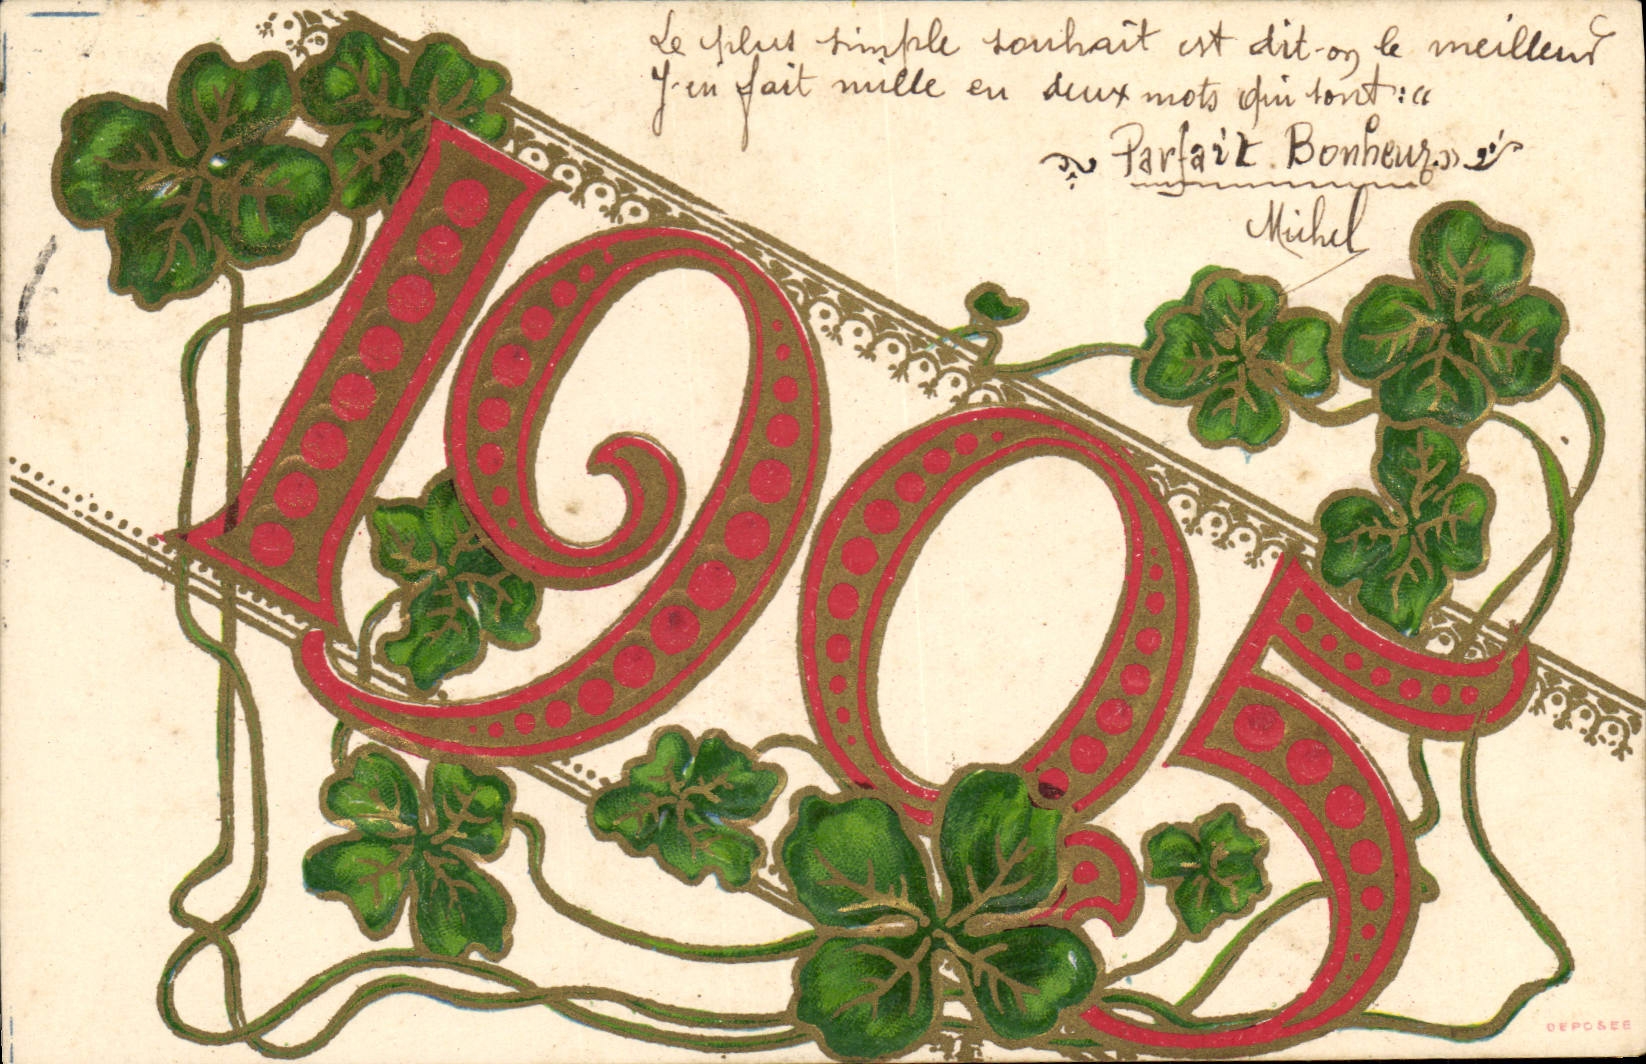 Le plus simple souhait est dit-on le meilleur
J'en fait mille en deux mots qui sont : "
Parfait Bonheur »
Michel
1905
DEPOSEE